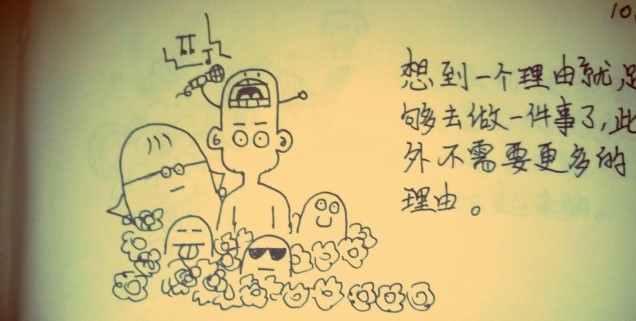 10.
想到一个理由就足
够去做一件事了,此
外不需要更多的
理由。